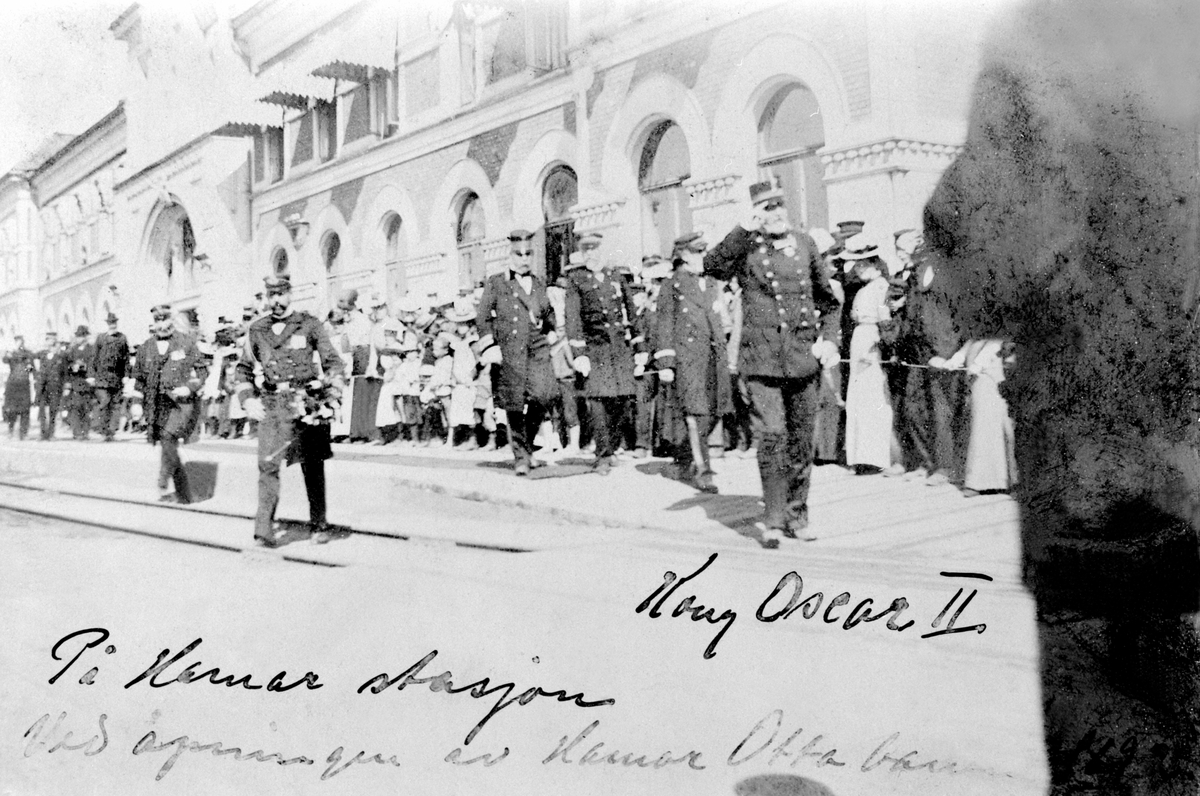 Kong Oscar II.
På Hamar stasjon
Ved åpningen av Hamar Otta banen